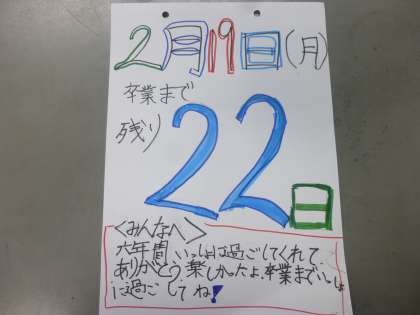 2月19日(月)
卒業まで
残り
22日
<みんなへ>
六年間いっしょに過ごしてくれて
ありがとう楽しかったよ.卒業までいっしょ
に過ごしてね!